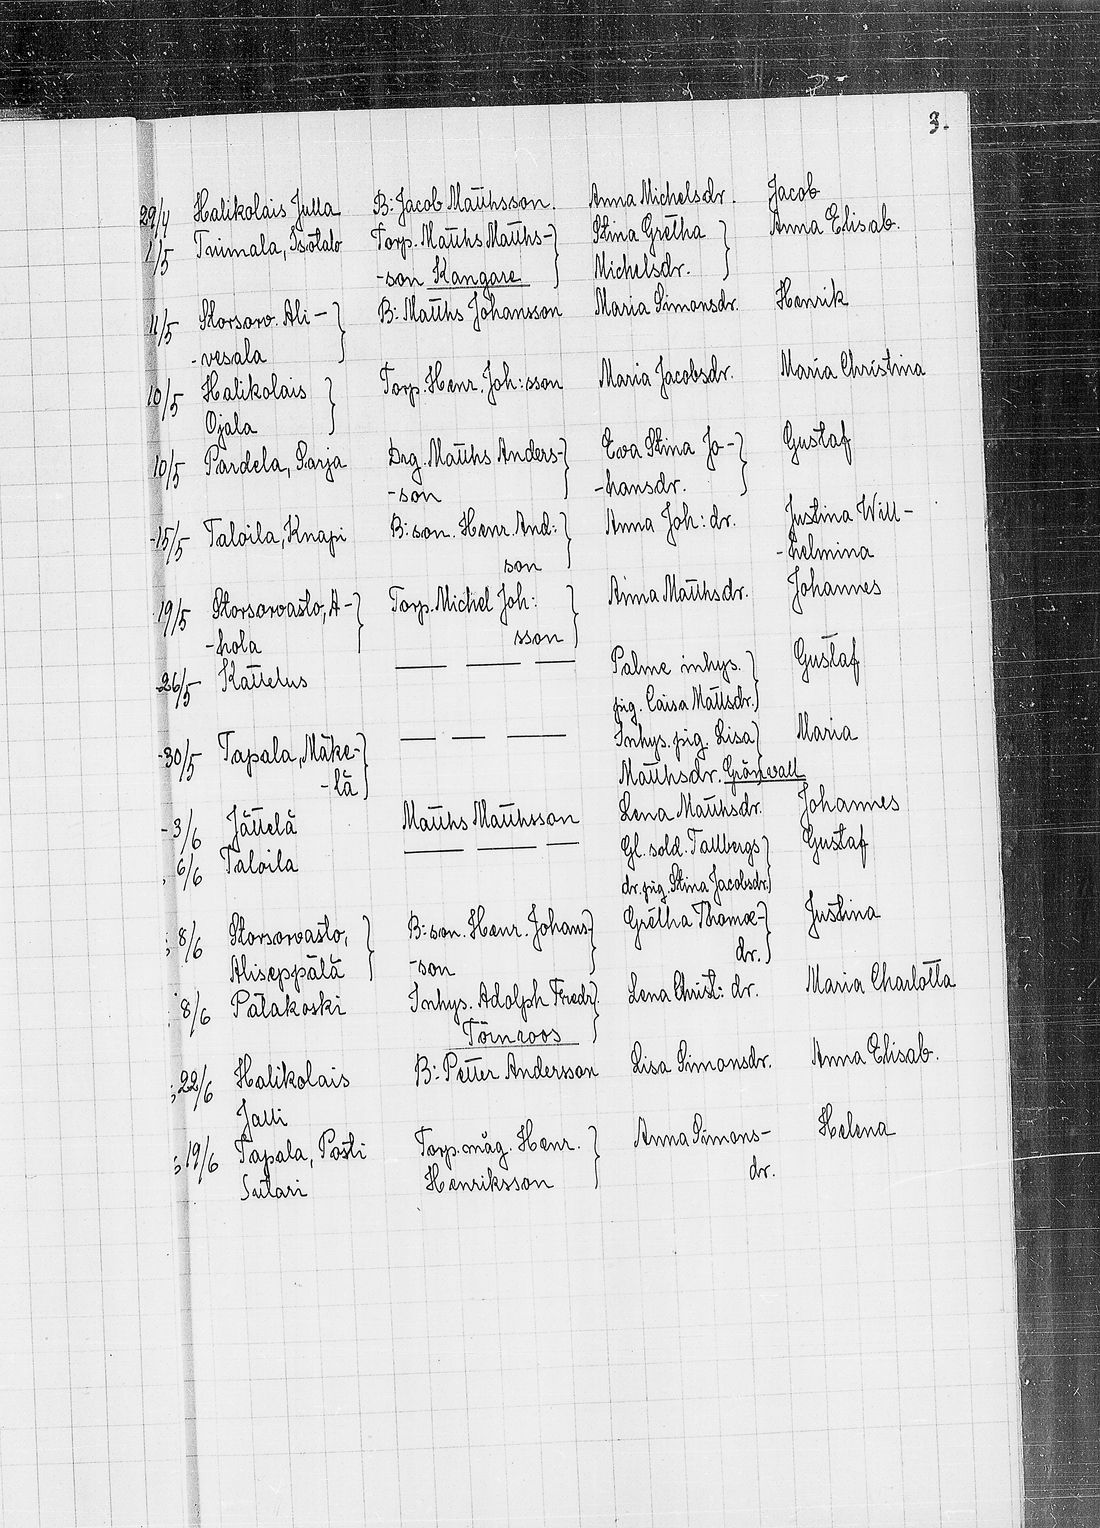 3.
29/4 Halikolais Julla B: Jacob Matthsson. Anna Michelsdr. Jacob
1/5 Tuimala, Isotalo Torp. Matths Matths- Stina Gretha Anna Elisab.
-son Kangare Michelsdr.
11/5 Storsorv. Ali- B: Matths Johansson Maria Simonsdr. Henrik
-vesala
10/5 Halikolais Torp. Henr. Joh:sson Maria Jacobsdr. Maria Christina
Ojala
10/5 Pardela, Sarja Drg. Matths Anders- Eva Stina Jo- Gustaf
-son -hansdr.
-15/5 Taloila, Knapi B:son. Henr. And: Anna Joh: dr. Justina Will-
son -helmina
19/5 Storsorvasto, A- Torp. Michel Joh: Anna Matthsdr. Johannes
-hola sson
26/5 Kattelus — — — Palme inhys. Gustaf
pig. Caisa Mattsdr.
-30/5 Tapala, Mäke- — — — Inhys. pig. Lisa Maria
-lä Matthsdr. Grönvall
-3/6 Jättelä Matths Matthsson Lena Matthsdr. Johannes
6/6 Taloila — — — Gl. sold. Tallbergs Gustaf
dr. pig. Stina Jacobsdr.
8/6 Storsorvasto, B:son. Henr. Johans- Gretha Thomæ- Justina
Aliseppälä -son dr.
8/6 Patakoski Inhys. Adolph Fredr. Lena Christ: dr. Maria Charlotta
Törnroos
22/6 Halikolais B: Petter Andersson Lisa Simonsdr. Anna Elisab.
Jalli
19/6 Tapala, Posti Torp. måg. Henr. Anna Simons- Helena
Sutari Henriksson dr.